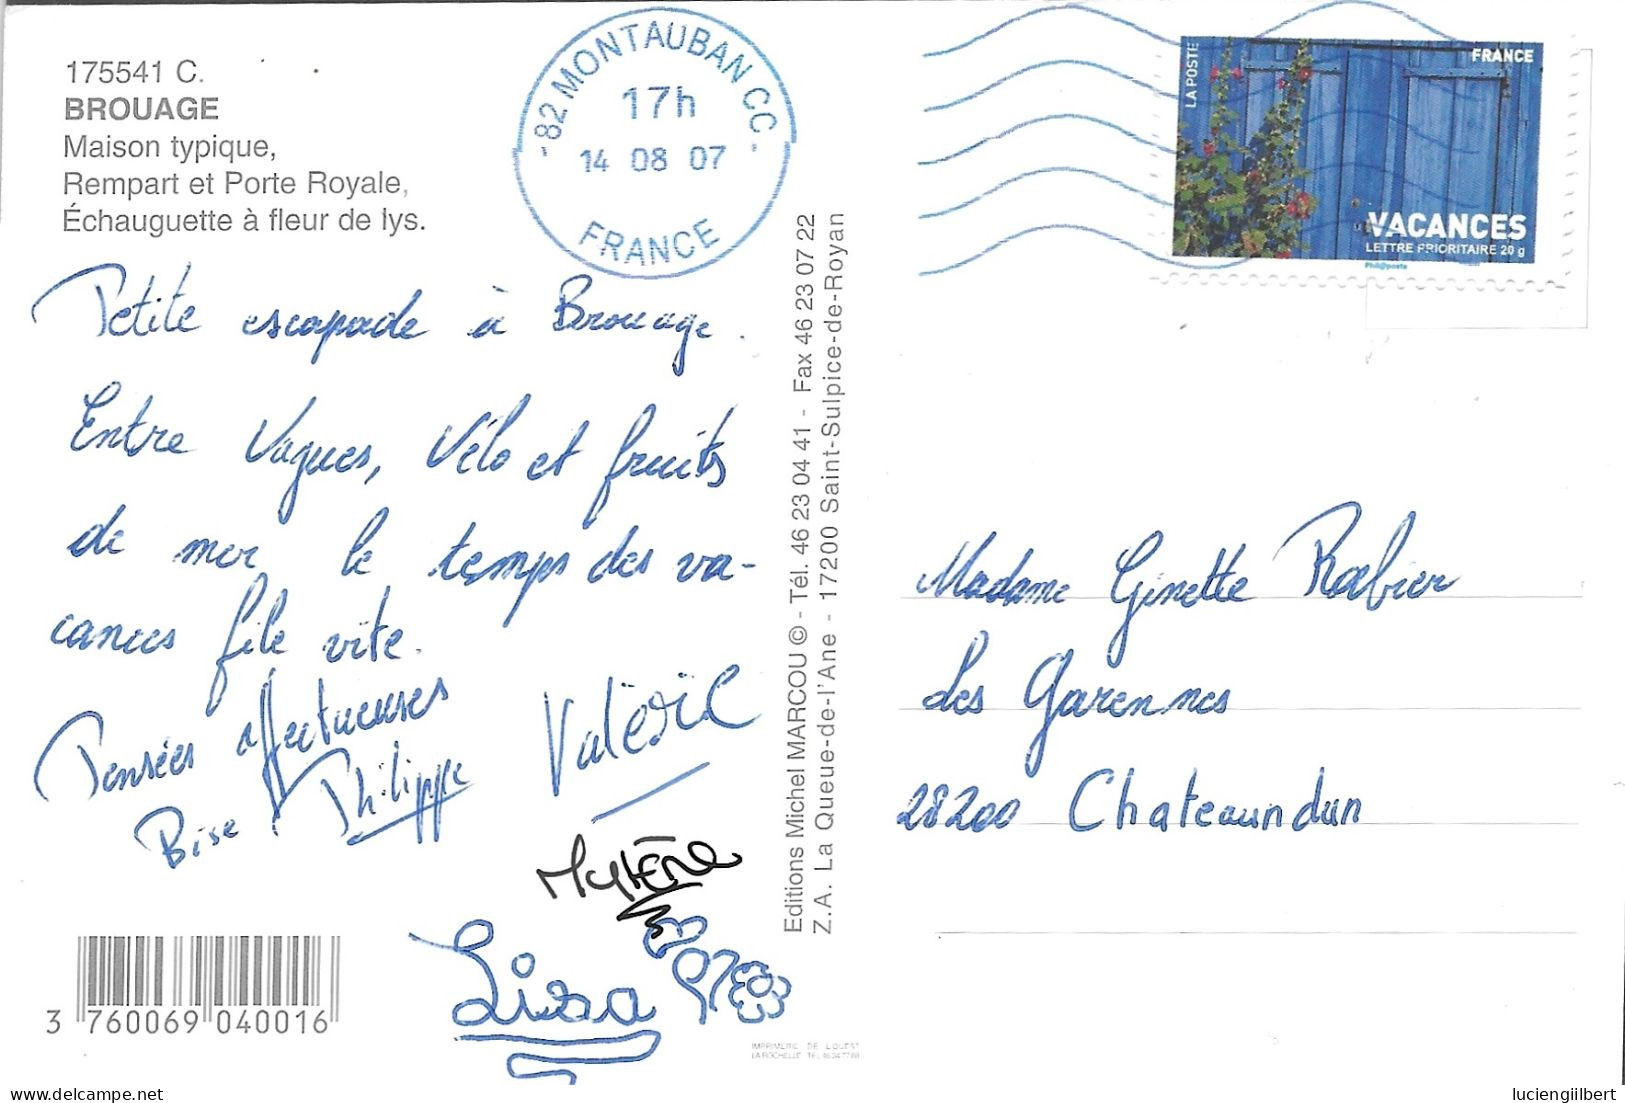 175541 C.
BROUAGE
Maison typique,
Rempart et Porte Royale,
Échauguette à fleur de lys.
- 82 MONTAUBAN CC. -
17h
14 08 07
FRANCE
LA POSTE
FRANCE
VACANCES
LETTRE PRIORITAIRE 20 g
Phil@poste
Petite escapade à Brouage.
Entre Vagues, Vélo et fruits
de mer le temps des va-
cances file vite.
Pensées affectueuses
Bise.
Philippe
Valérie
Mylène
Lisa
Editions Michel MARCOU © - Tél. 46 23 04 41 - Fax 46 23 07 22
Z.A. La Queue-de-l'Ane - 17200 Saint-Sulpice-de-Royan
Madame Ginette Rabier
Les Garennes
28200 Chateaundun
3 760069 040016
IMPRIMERIE DE L'OUEST
LA ROCHELLE
luciengiilbert